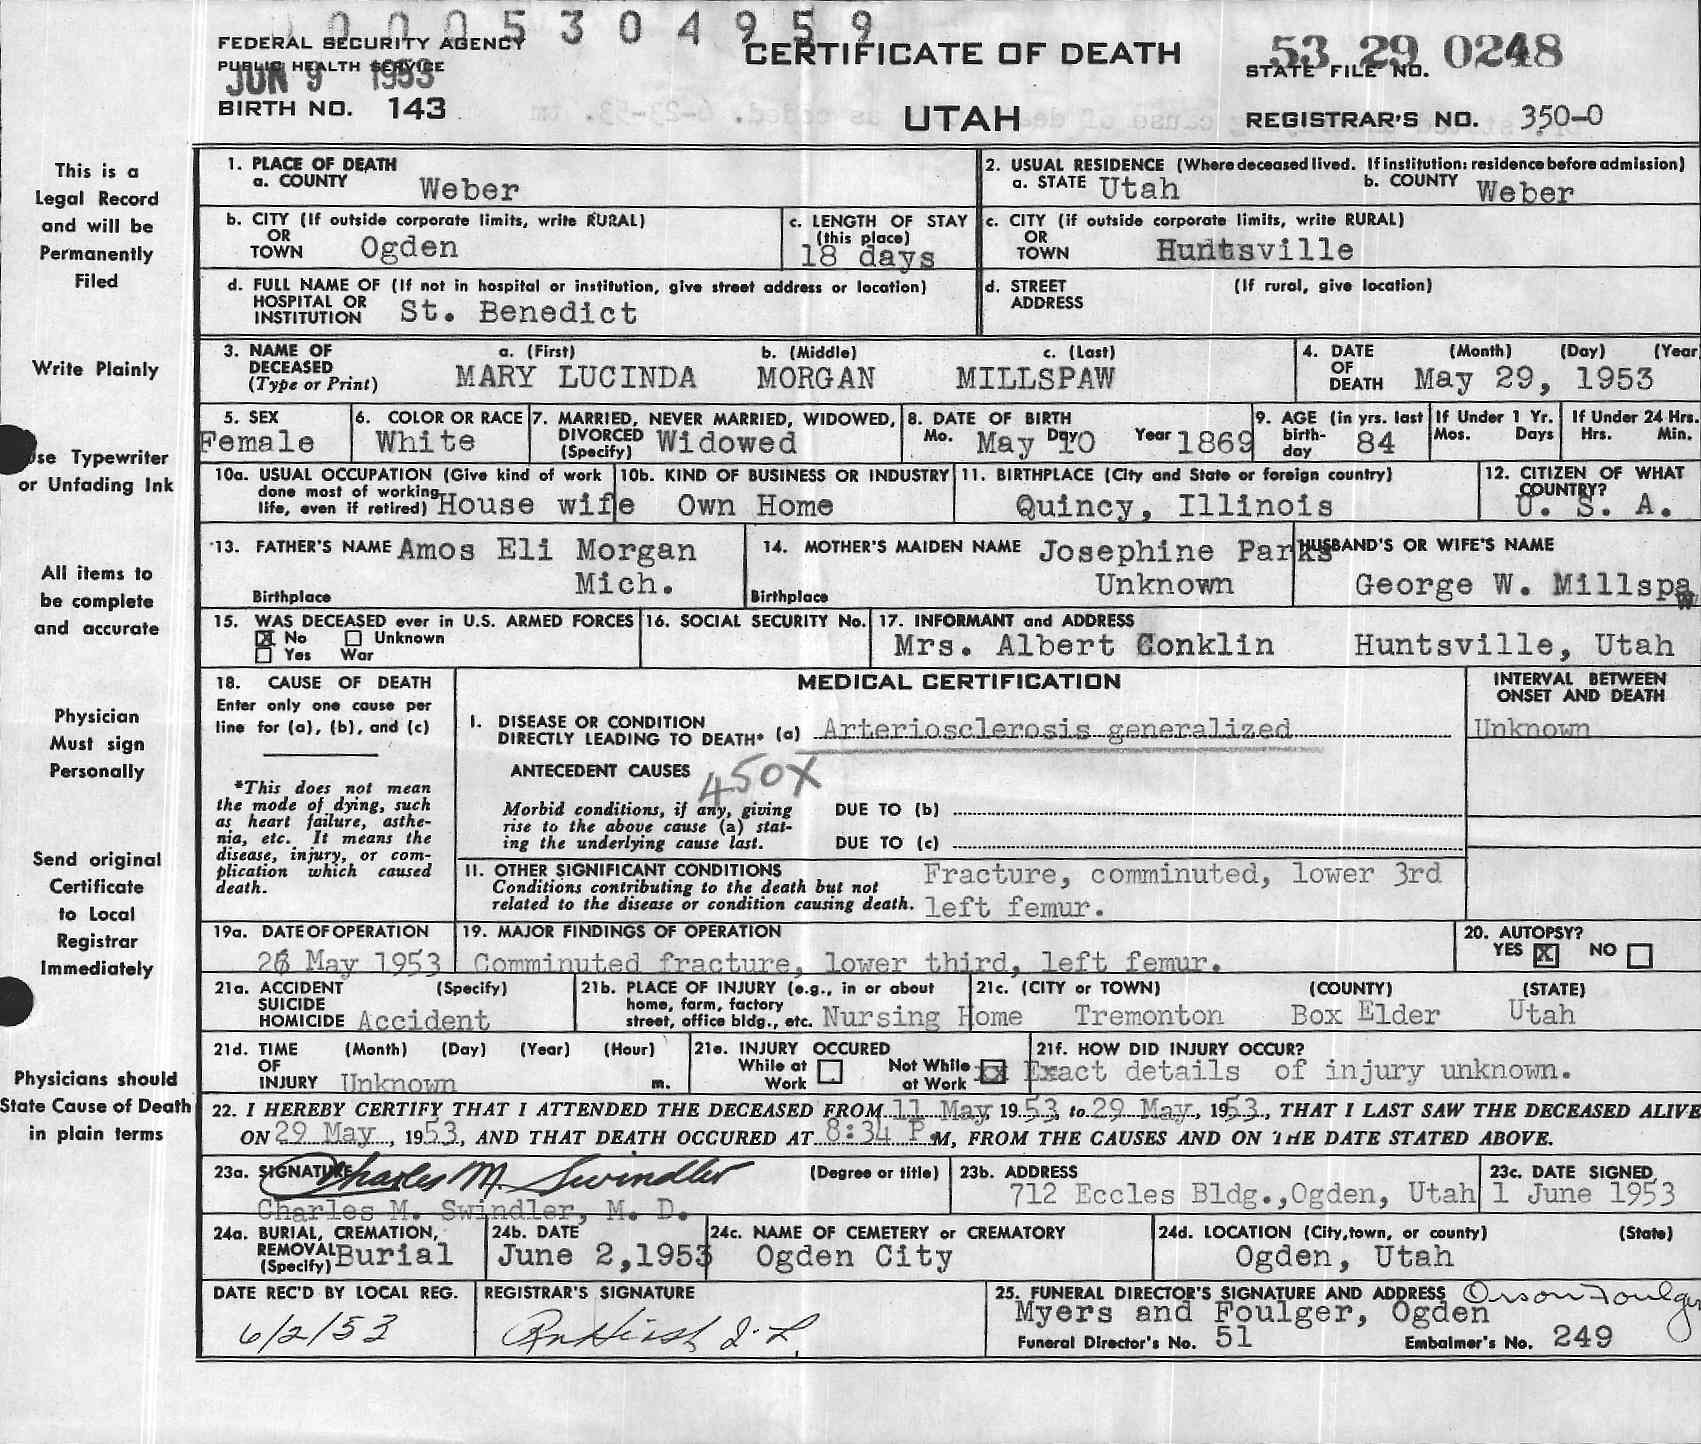 0005304959
FEDERAL SECURITY AGENCY
PUBLIC HEALTH SERVICE
JUN 9 1953
BIRTH NO. 143
CERTIFICATE OF DEATH
UTAH
53 29 0248
STATE FILE NO.
REGISTRAR'S NO. 350-0
This is a
Legal Record
and will be
Permanently
Filed
Write Plainly
Use Typewriter
or Unfading Ink
All items to
be complete
and accurate
Physician
Must sign
Personally
Send original
Certificate
to Local
Registrar
Immediately
Physicians should
State Cause of Death
in plain terms
1. PLACE OF DEATH
a. COUNTY Weber
2. USUAL RESIDENCE (Where deceased lived. If institution: residence before admission)
a. STATE Utah b. COUNTY Weber
b. CITY (If outside corporate limits, write RURAL)
OR
TOWN Ogden
c. LENGTH OF STAY
(this place)
18 days
c. CITY (if outside corporate limits, write RURAL)
OR
TOWN Huntsville
d. FULL NAME OF (If not in hospital or institution, give street address or location)
HOSPITAL OR
INSTITUTION St. Benedict
d. STREET (If rural, give location)
ADDRESS
3. NAME OF
DECEASED
(Type or Print)
a. (First) b. (Middle) c. (Last)
MARY LUCINDA MORGAN MILLSPAW
4. DATE (Month) (Day) (Year
OF
DEATH May 29, 1953
5. SEX
Female
6. COLOR OR RACE
White
7. MARRIED, NEVER MARRIED, WIDOWED,
DIVORCED
(Specify) Widowed
8. DATE OF BIRTH
Mo. May Day 10 Year 1869
9. AGE (in yrs. last
birth-
day 84
If Under 1 Yr.
Mos. Days
If Under 24 Hrs.
Hrs. Min.
10a. USUAL OCCUPATION (Give kind of work
done most of working
life, even if retired) House wife
10b. KIND OF BUSINESS OR INDUSTRY
Own Home
11. BIRTHPLACE (City and State or foreign country)
Quincy, Illinois
12. CITIZEN OF WHAT
COUNTRY?
U. S. A.
13. FATHER'S NAME Amos Eli Morgan
Birthplace Mich.
14. MOTHER'S MAIDEN NAME Josephine Parks
Birthplace Unknown
HUSBAND'S OR WIFE'S NAME
George W. Millspaw
15. WAS DECEASED ever in U.S. ARMED FORCES
X No Unknown
Yes War
16. SOCIAL SECURITY No.
17. INFORMANT and ADDRESS
Mrs. Albert Conklin Huntsville, Utah
18. CAUSE OF DEATH
Enter only one cause per
line for (a), (b), and (c)
*This does not mean
the mode of dying, such
as heart failure, asthe-
nia, etc. It means the
disease, injury, or com-
plication which caused
death.
MEDICAL CERTIFICATION
INTERVAL BETWEEN
ONSET AND DEATH
I. DISEASE OR CONDITION
DIRECTLY LEADING TO DEATH* (a) Arteriosclerosis generalized
Unknown
ANTECEDENT CAUSES
450X
Morbid conditions, if any, giving
rise to the above cause (a) stat-
ing the underlying cause last.
DUE TO (b)
DUE TO (c)
II. OTHER SIGNIFICANT CONDITIONS
Conditions contributing to the death but not
related to the disease or condition causing death.
Fracture, comminuted, lower 3rd
left femur.
19a. DATE OF OPERATION
26 May 1953
19. MAJOR FINDINGS OF OPERATION
Comminuted fracture, lower third, left femur.
20. AUTOPSY?
YES X NO
21a. ACCIDENT (Specify)
SUICIDE
HOMICIDE Accident
21b. PLACE OF INJURY (e.g., in or about
home, farm, factory
street, office bldg., etc. Nursing Home
21c. (CITY or TOWN) (COUNTY) (STATE)
Tremonton Box Elder Utah
21d. TIME (Month) (Day) (Year) (Hour)
OF
INJURY Unknown m.
21e. INJURY OCCURED
While at Work
Not While at Work X
21f. HOW DID INJURY OCCUR?
Exact details of injury unknown.
22. I HEREBY CERTIFY THAT I ATTENDED THE DECEASED FROM 11 May, 1953, to 29 May, 1953, THAT I LAST SAW THE DECEASED ALIVE
ON 29 May, 1953, AND THAT DEATH OCCURED AT 8:34 P.M, FROM THE CAUSES AND ON THE DATE STATED ABOVE.
23a. SIGNATURE Charles M. Swindler (Degree or title)
Charles M. Swindler, M. D.
23b. ADDRESS
712 Eccles Bldg., Ogden, Utah
23c. DATE SIGNED
1 June 1953
24a. BURIAL, CREMATION,
REMOVAL
(Specify) Burial
24b. DATE
June 2, 1953
24c. NAME OF CEMETERY or CREMATORY
Ogden City
24d. LOCATION (City, town, or county) (State)
Ogden, Utah
DATE REC'D BY LOCAL REG.
6/2/53
REGISTRAR'S SIGNATURE
25. FUNERAL DIRECTOR'S SIGNATURE AND ADDRESS Orson Foulger
Myers and Foulger, Ogden
Funeral Director's No. 51 Embalmer's No. 249